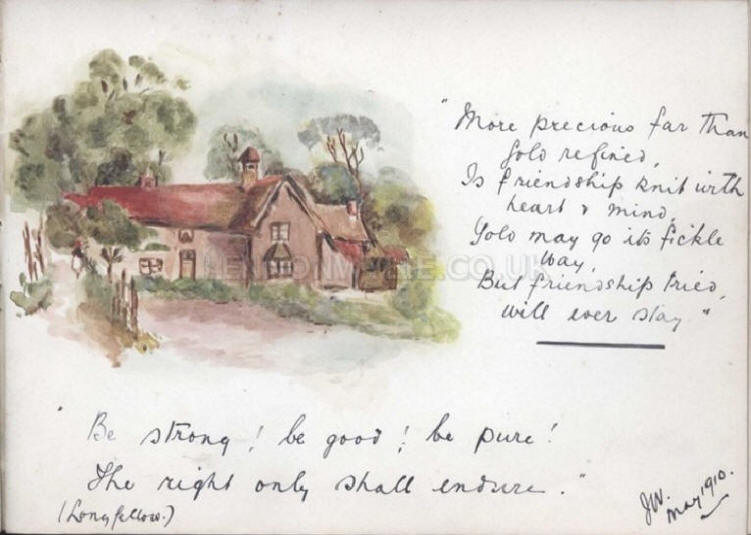 "More precious far than
Gold refined,
Is friendship knit with
heart & mind,
Gold may go its fickle
way,
But friendship tried,
will ever stay"
"Be strong! be good! be pure!
The right only shall endure."
(Longfellow.)
JW.
May 1910.